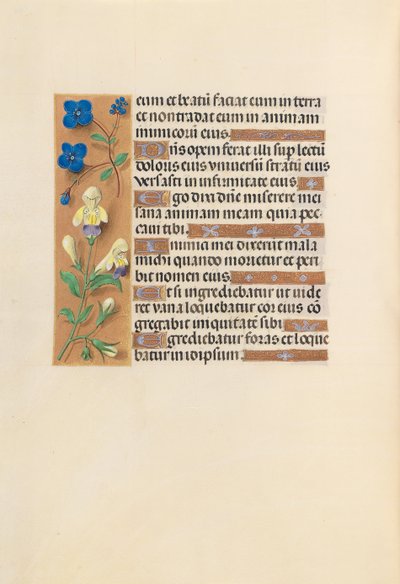 eum et beatū faciat eum in terra
et non tradat eum in animam
inimicoꝝ eius.
Dn̄s opem ferat illi sup lectū
doloris eius vniuersū stratū eius
versasti in infirmitate eius
Ego dixi dn̄e miserere mei
sana animam meam quia pec
caui tibi.
Inimici mei dixerūt mala
michi quando morietur et peri
bit nomen eius
Et si ingrediebatur vt vide
ret vana loquebatur cor eius cō
gregabit iniquitatē sibi
Egrediebatur foras et loque
batur in idipsum.